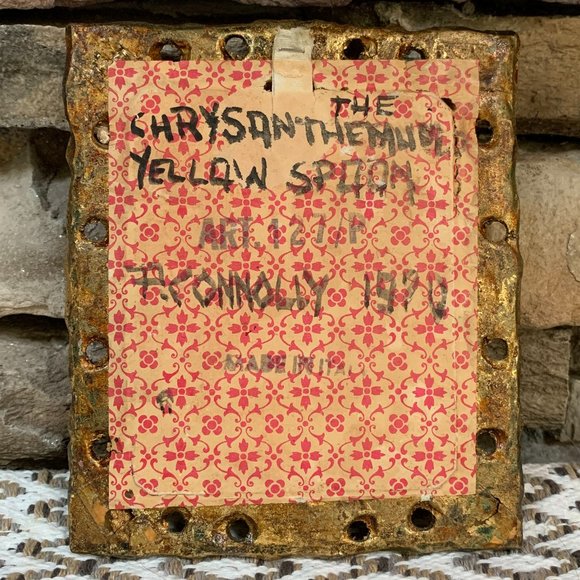 THE
CHRYSANTHEMUM
YELLOW SPOON
ART. 127/P
P. CONNOLLY 1970
MADE IN ITA